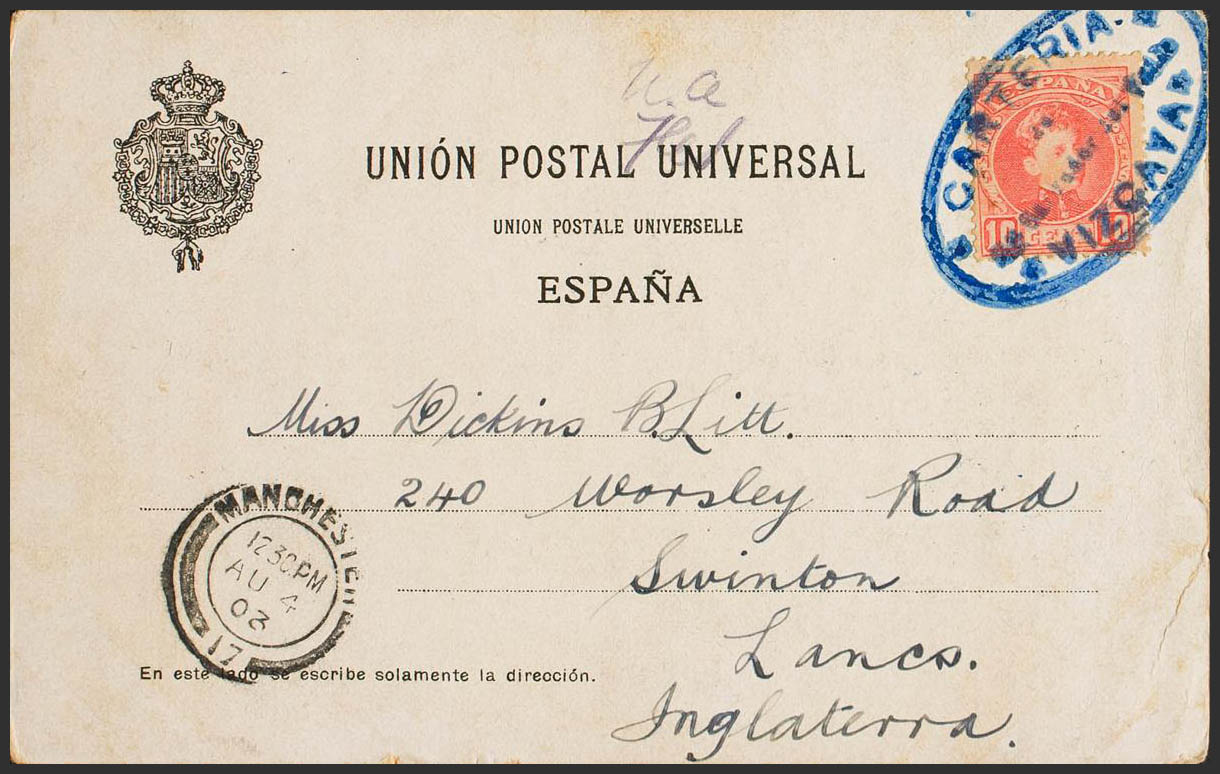 CARTERIA
VIZCAYA
ESPAÑA
10 CENT 10
UNIÓN POSTAL UNIVERSAL
UNION POSTALE UNIVERSELLE
ESPAÑA
Miss Dickins B.Litt.
240 Worsley Road
Swinton
Lancs.
Inglaterra.
MANCHESTER
12 30 PM
AU 4
03
17
En este lado se escribe solamente la dirección.